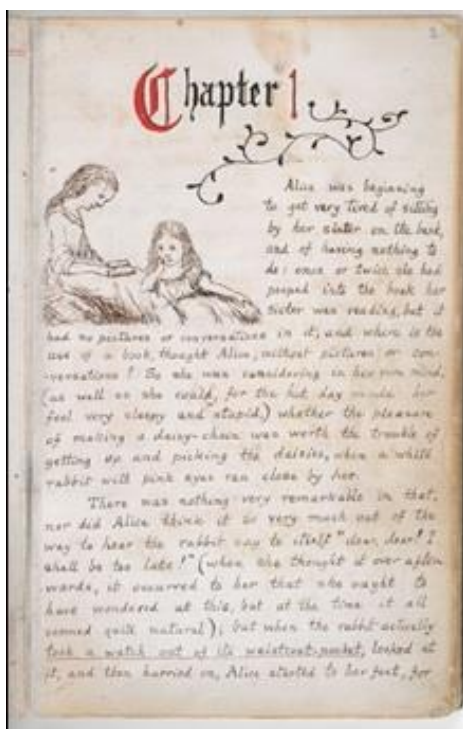 2
Chapter 1
Alice was beginning
to get very tired of sitting
by her sister on the bank,
and of having nothing to
do: once or twice she had
peeped into the book her
sister was reading, but it
had no pictures or conversations in it, and where is the
use of a book, thought Alice, without pictures or con-
-versations? So she was considering in her own mind,
(as well as she could, for the hot day made her
feel very sleepy and stupid,) whether the pleasure
of making a daisy-chain was worth the trouble of
getting up and picking the daisies, when a white
rabbit with pink eyes ran close by her.
There was nothing very remarkable in that,
nor did Alice think it so very much out of the
way to hear the rabbit say to itself "dear, dear! I
shall be too late!" (when she thought it over after-
-wards, it occurred to her that she ought to
have wondered at this, but at the time it all
seemed quite natural); but when the rabbit actually
took a watch out of its waistcoat-pocket, looked at
it, and then hurried on, Alice started to her feet, for